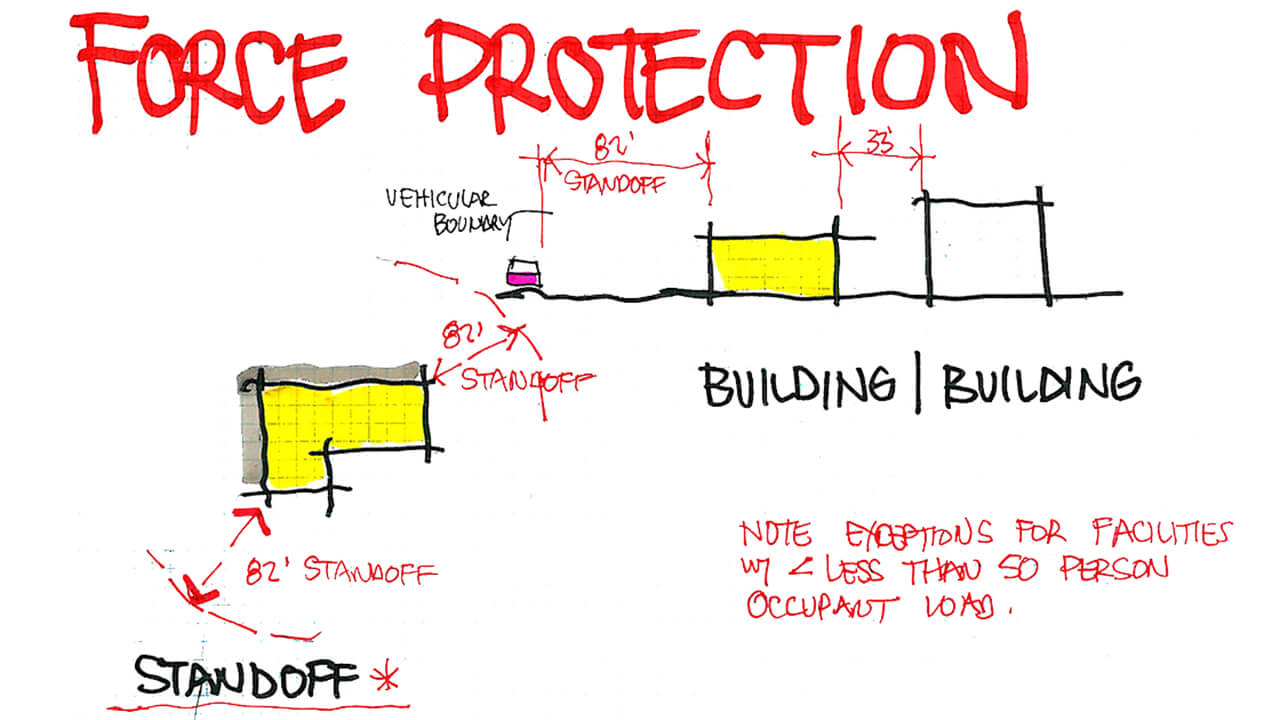 FORCE PROTECTION
82'
STANDOFF
33'
VEHICULAR
BOUNARY
82'
STANDOFF
BUILDING | BUILDING
NOTE EXCEPTIONS FOR FACILITIES
W/ < LESS THAN 50 PERSON
OCCUPANT LOAD.
82' STANDOFF
STANDOFF *